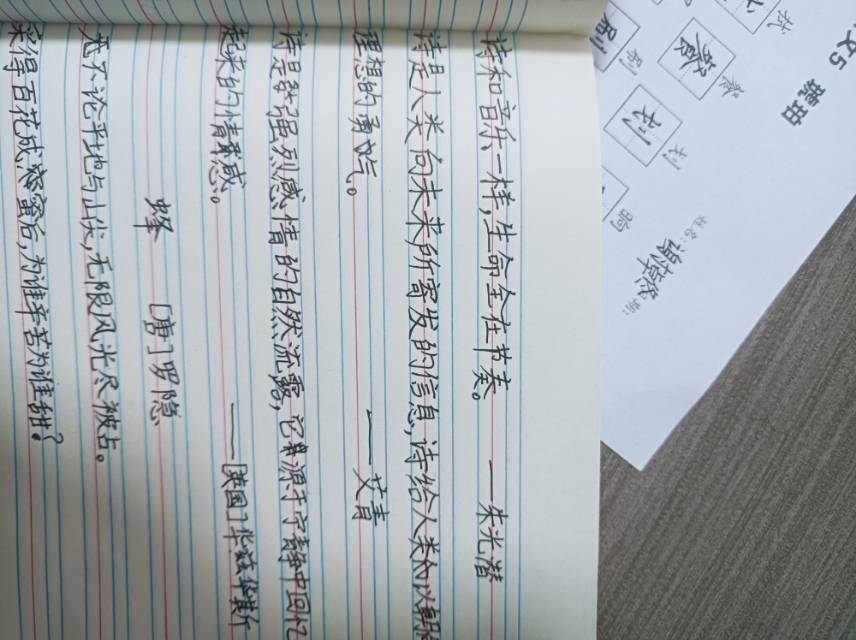 诗和音乐一样,生命全在节奏。 ——朱光潜
诗是人类向未来所寄发的信息,诗给人类以朝
理想的勇气。 ——艾青
诗是强烈感情的自然流露,它源于宁静中回忆
起来的情感。 ——[英国]华兹华斯
蜂 [唐]罗隐
不论平地与山尖,无限风光尽被占。
采得百花成蜜后,为谁辛苦为谁甜?
文5 琥珀
姓名:
刮
刮
餐
餐
划
划
晌